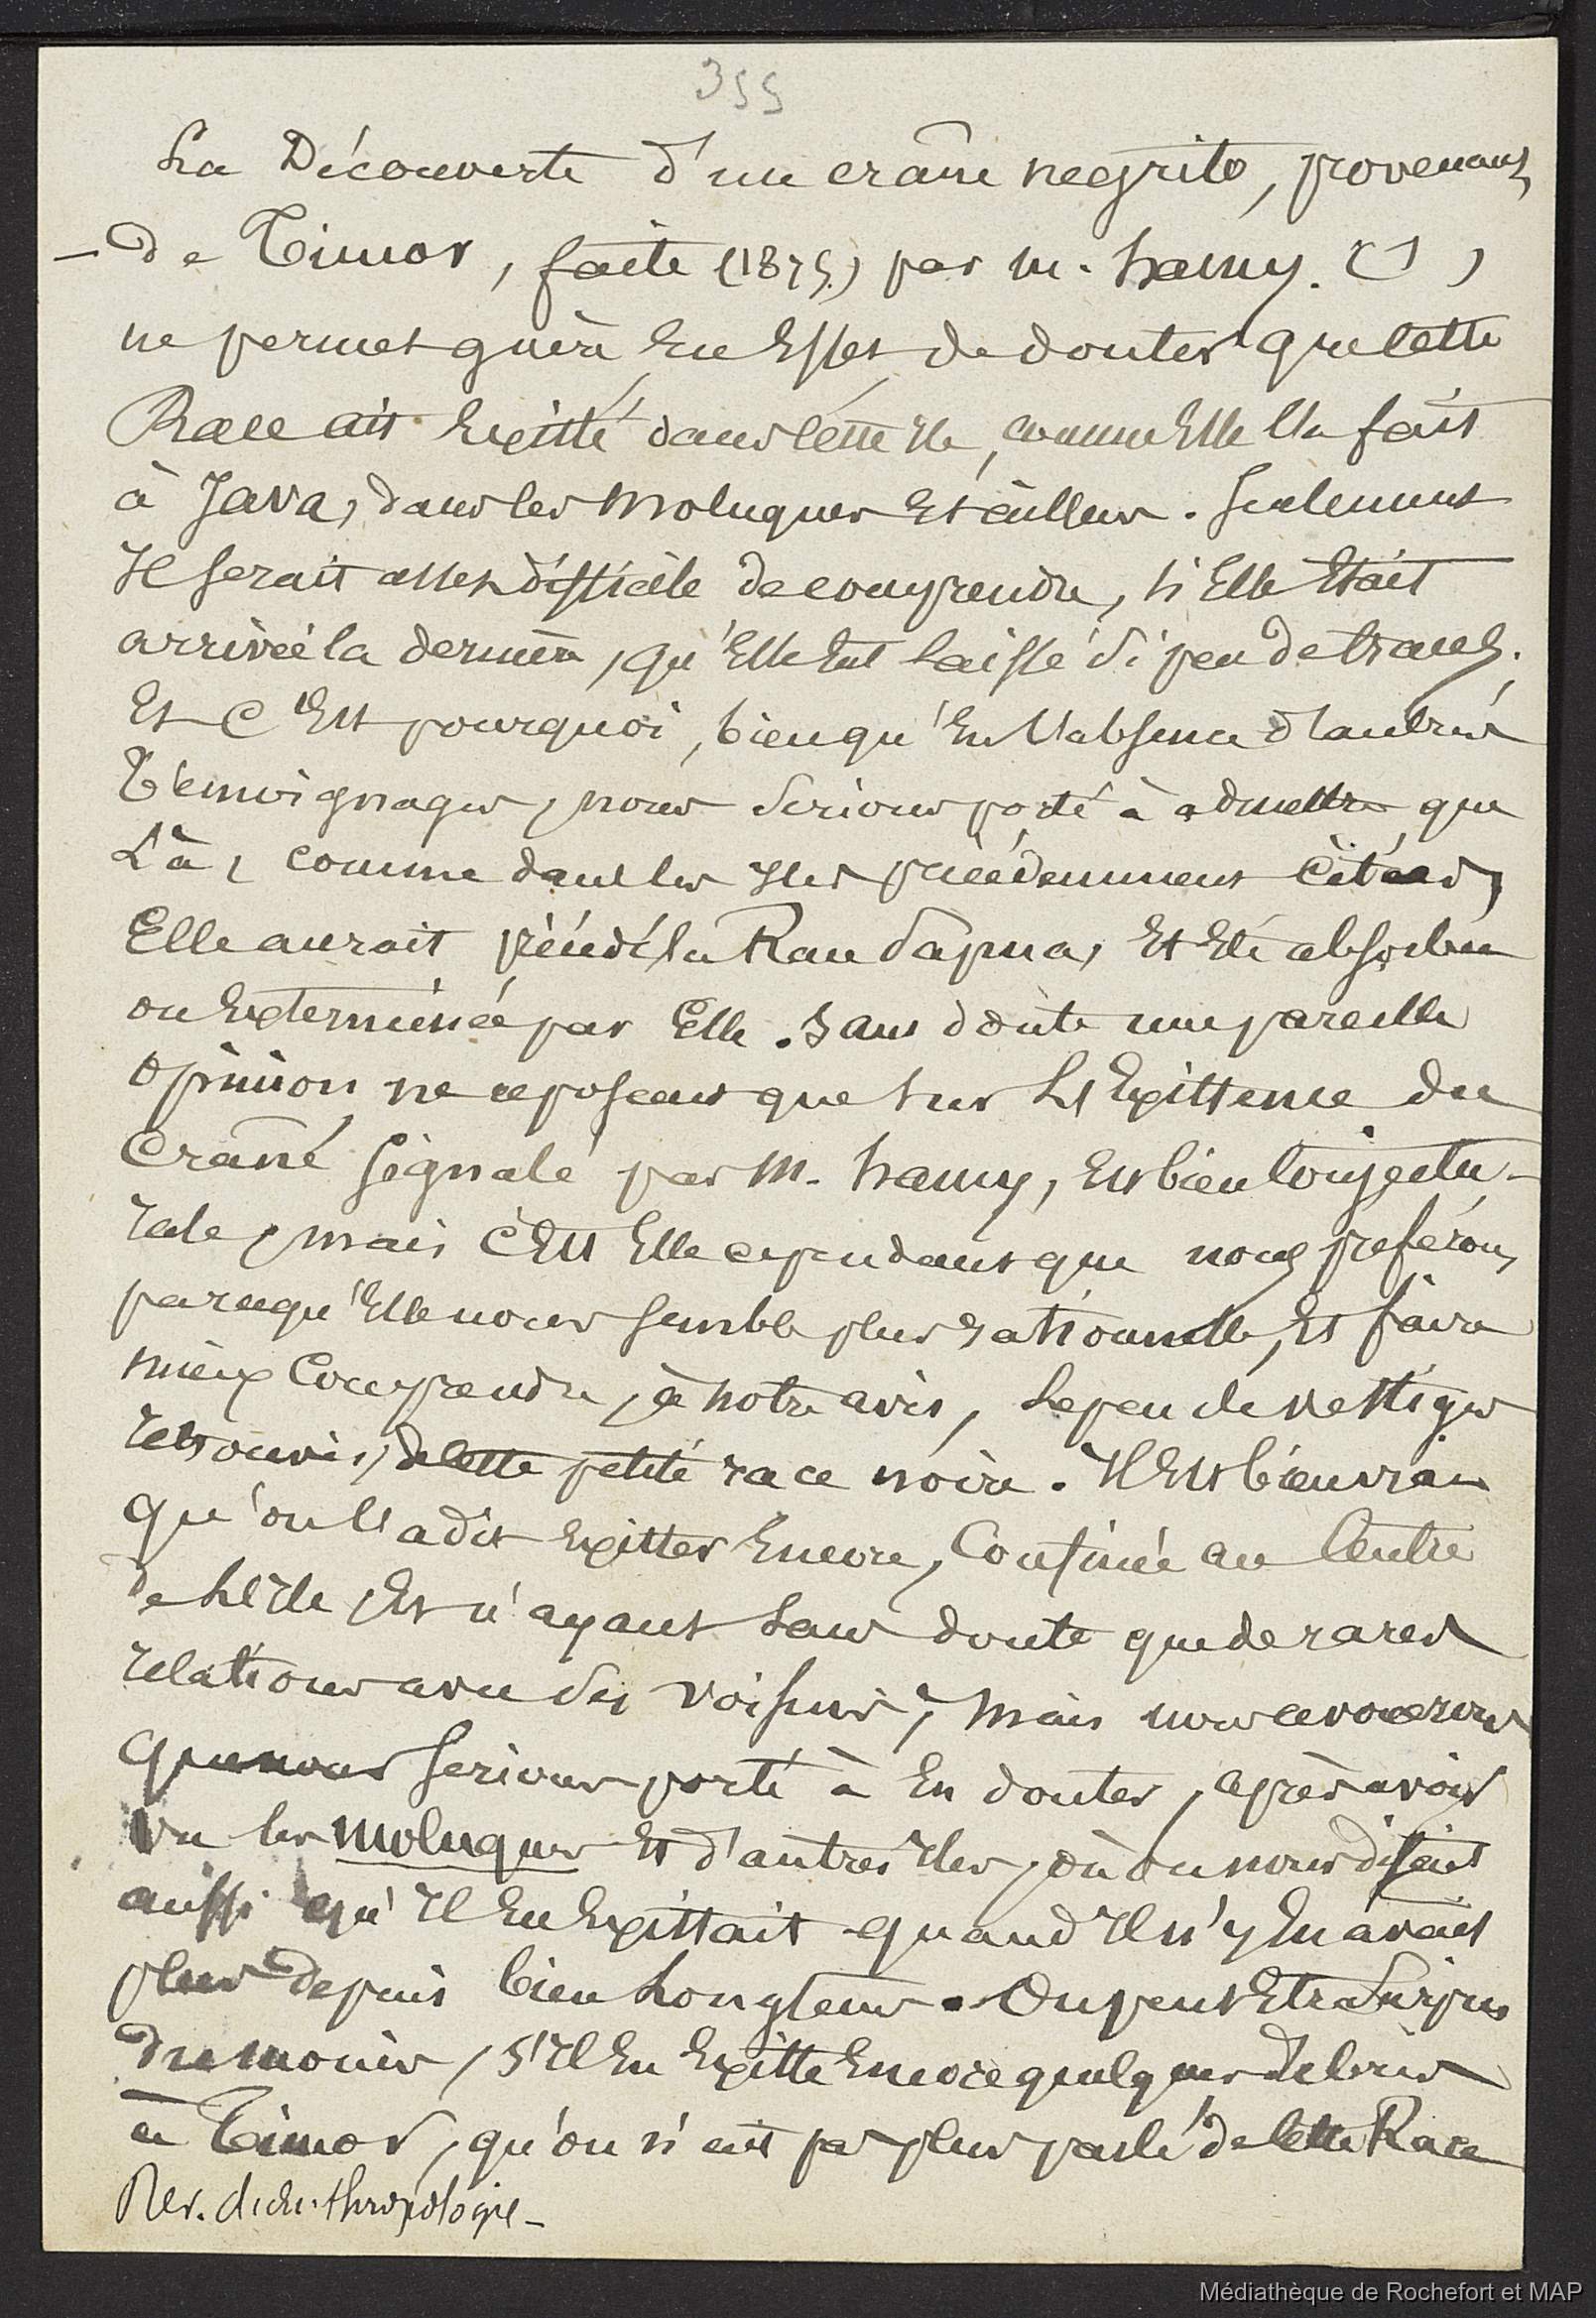 355
La Découverte d'un crâne negrito, provenant
- de Timor, faite (1875) par M. hamy. (1),
ne permet guère En Effet de douter que cette
Race ait Existé dans cette Ile, comme Elle l'a fait
à Java, dans les Moluques Et ailleurs. Seulement
Il serait assez difficile de comprendre, si Elle Etait
arrivée la dernière, qu'Elle Eut laissé si peu de traces.
Et C'Est pourquoi, bien qu'En l'absence d'autres
témoignages, nous serions porté à admettre que
Là, comme dans les Iles précédemment citées,
Elle aurait précédé la Race Papua, Et Eté absorbée
ou Exterminée par Elle. Sans doute une pareille
Opinion ne reposant que sur L'Existence du
Crâne signalé par M. hamy, Est bien Conjectu-
rale, mais C'Est Elle cependant que nous préférons
parcequ'Elle nous semble plus rationnelle, Et faire
mieux Comprendre, à notre avis, Le peu de vestiges
retrouvés, de cette petite race noire. Il Est bien vrai
qu'on l'a dit Exister Encore, Confinée au Centre
de L'Ile, Et n'ayant sans doute que de rares
relations avec ses voisins; Mais nous avouerons
que nous serions porté à En douter, après avoir
vu les Moluques Et d'autres Iles, où on nous disait
aussi qu'Il En Existait quand Il n'y En avait
plus depuis bien Longtems. On peut Etre surpris
du moins, s'Il En Existe Encore quelques debris
à Timor, qu'on n'ait pas plus parlé de cette Race
Rev. d'anthropologie -
Médiathèque de Rochefort et MAP